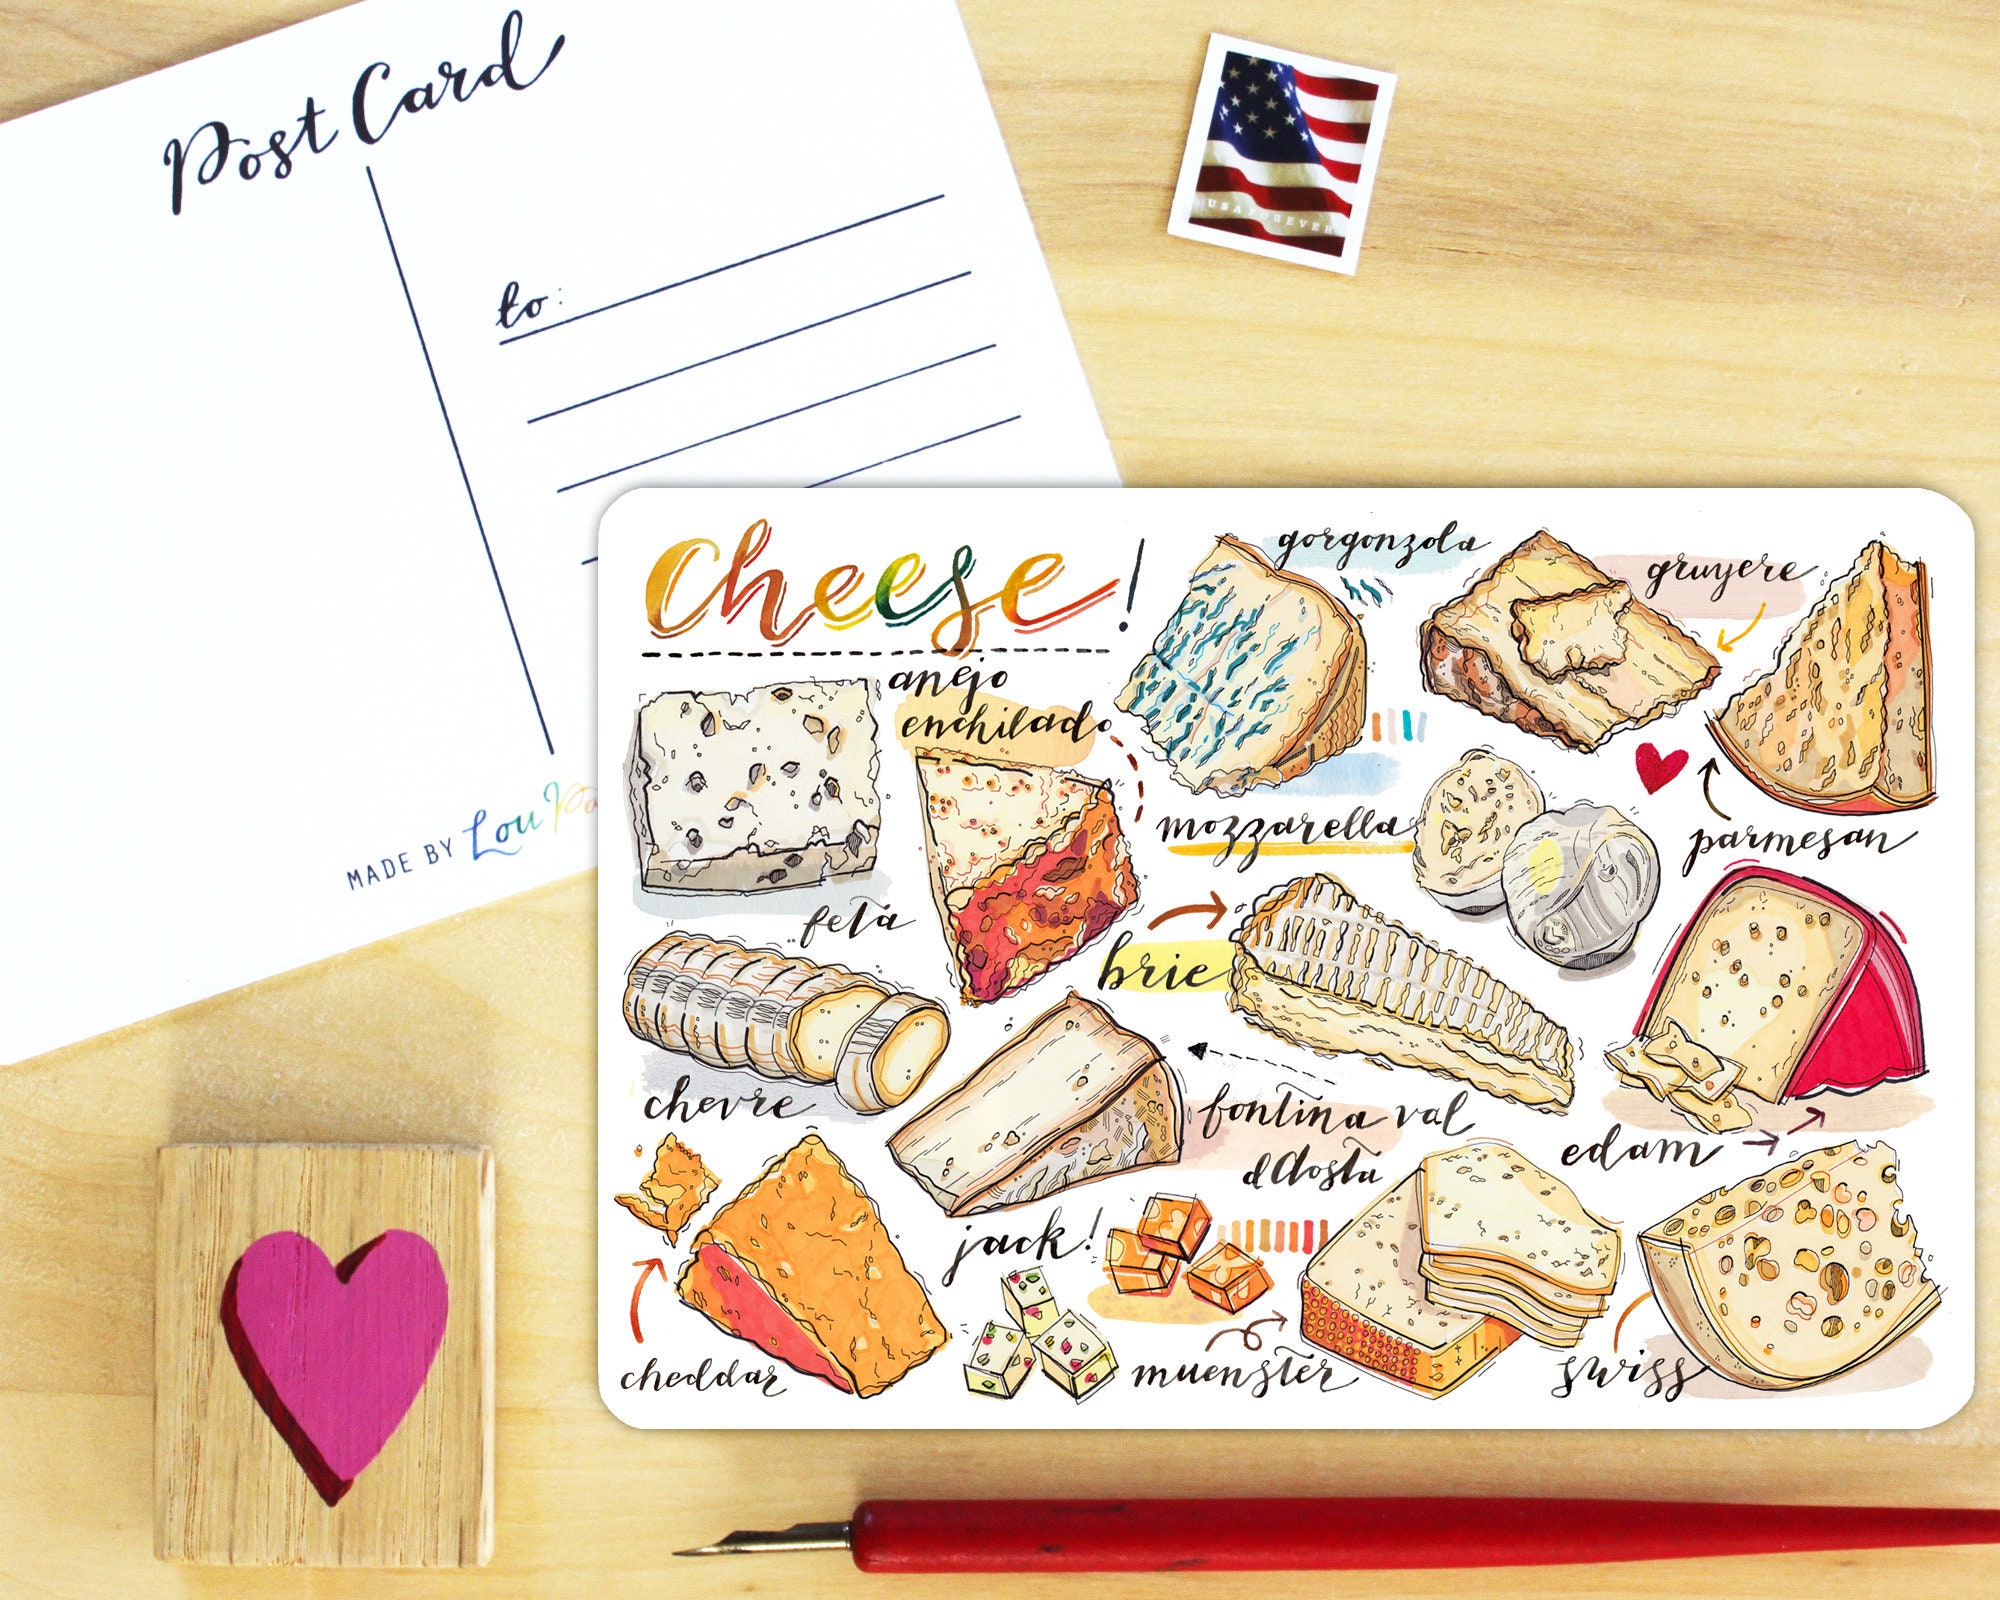 Post Card
to:
MADE BY Lou
USA FOREVER
Cheese!
gorgonzola
gruyere
anejo
enchilado
mozzarella
parmesan
feta
brie
chevre
fontina val
d'Aosta
edam
jack!
cheddar
muenster
swiss